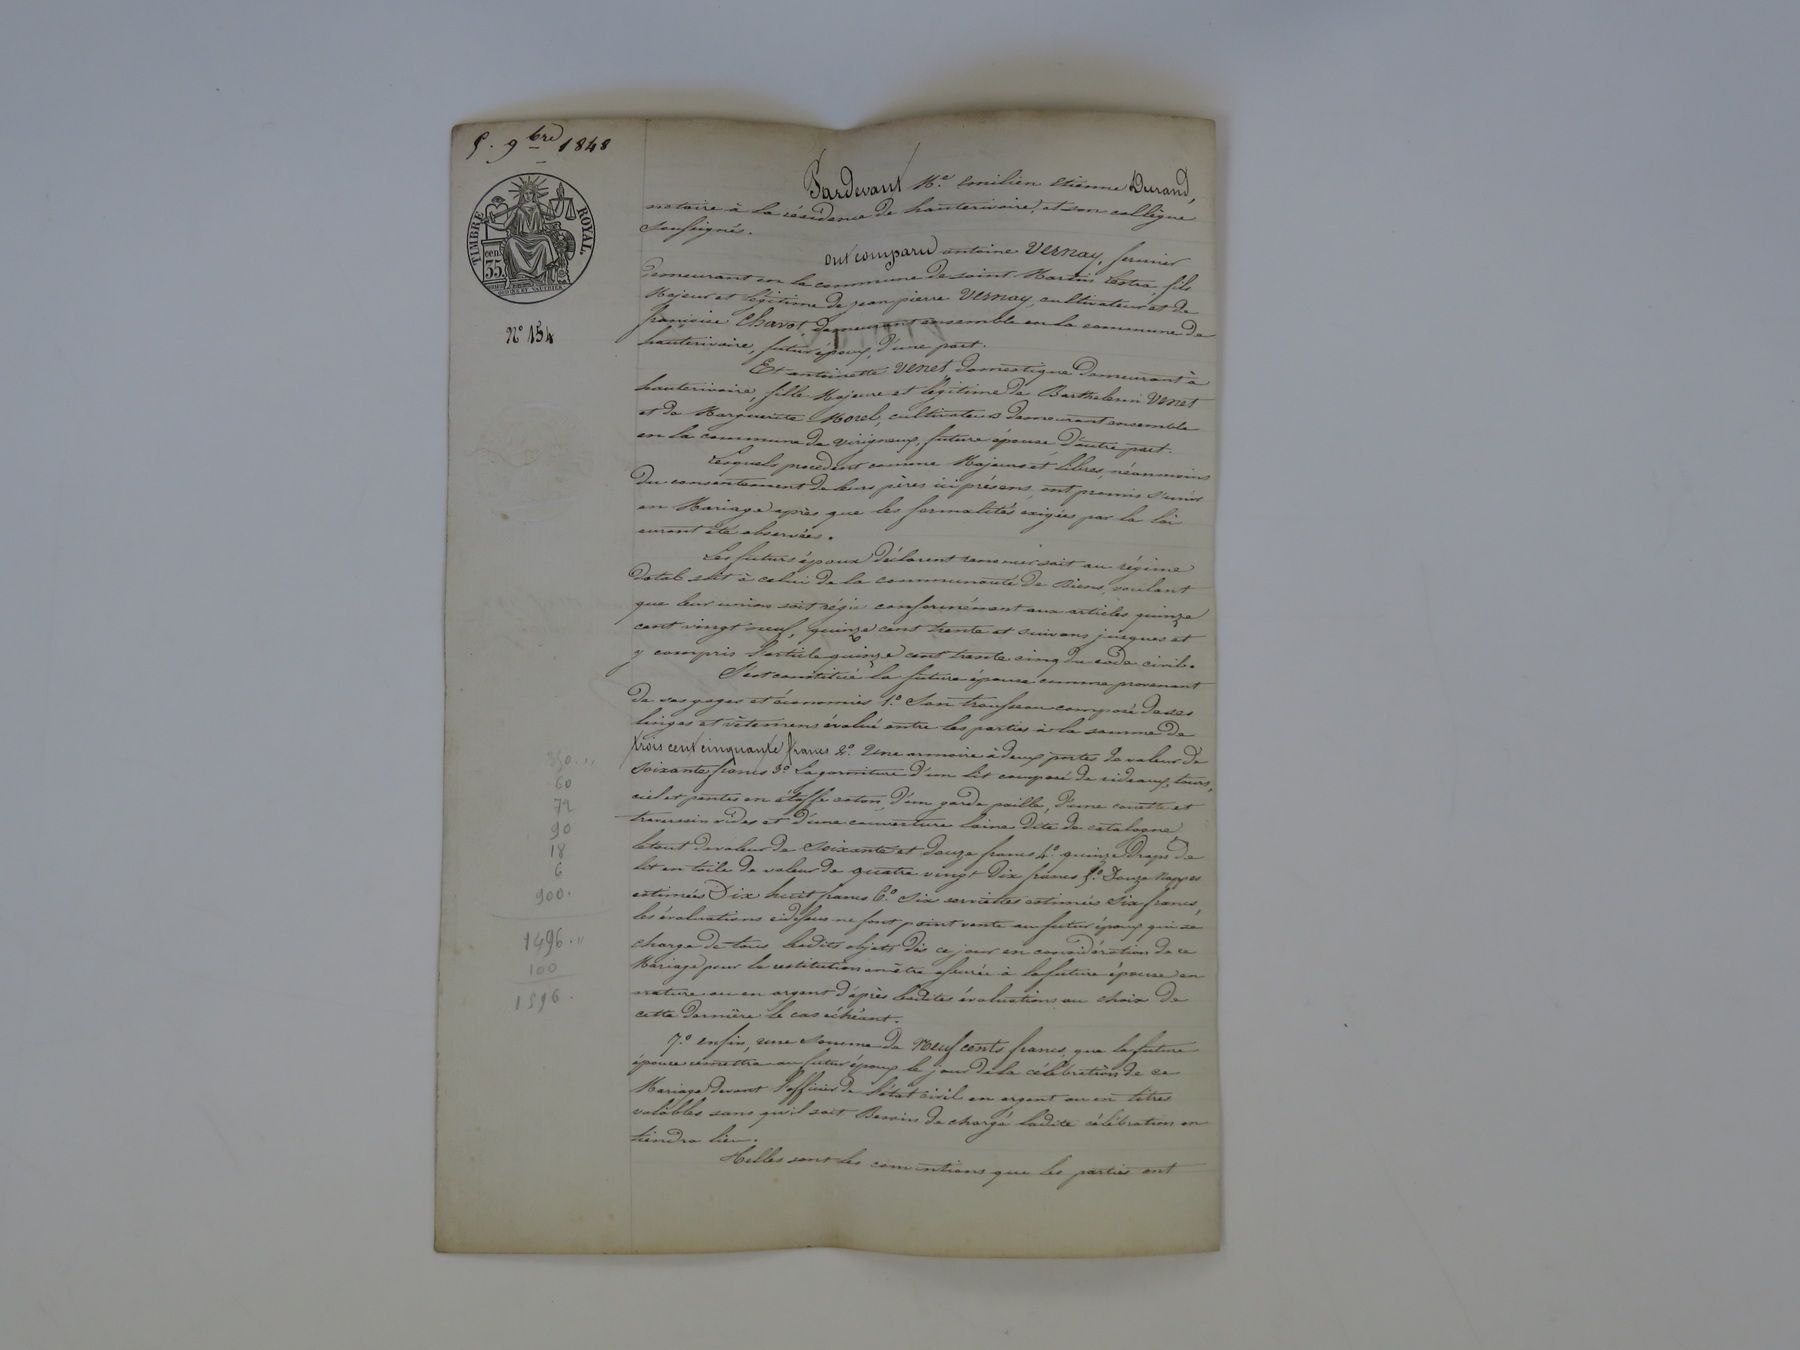 5. 9bre 1848
TIMBRE ROYAL
cen.
35.
N° 154
Pardevant Me. Emilien Etienne Durand,
notaire à la résidence de hauterivoire, et son collègue
soussignés.
ont comparu antoine Vernay, fermier
demeurant en la commune de saint Martin lestra, fils
Majeur et légitime de jean pierre Vernay, cultivateur et de
françoise Chavot, demeurant ensemble en la commune de
hauterivoire, futur époux, d'une part.
Et antoinette Venet domestique demeurant à
hauterivoire, fille Majeure et légitime de Barthelemi Venet
et de Marguerite Morel, cultivateurs demeurant ensemble
en la commune de virigneux, future épouse, d'autre part.
Lesquels procédant comme Majeurs et libres, néanmoins
du consentement de leurs pères ici présens, ont promis s'unir
en Mariage après que les formalités exigées par la loi
auront été observées.
Les futurs époux déclarent renoncer soit au régime
dotal soit à celui de la communauté de Biens, voulant
que leur union soit régie conformément aux articles quinze
cent vingt neuf, quinze cent trente et suivans jusques et
y compris l'article quinze cent trente cinq du code civil.
S'est constitué la future épouse comme provenant
de ses gages et économies 1° Son trousseau composé de ses
linges et vêtemens évalué entre les parties à la somme de
trois cent cinquante francs 2°. Une armoire à deux portes de valeur de
soixante francs 3° La garniture d'un lit composé de rideaux, tours,
ciel et pentes en étoffe coton, d'un garde paille, d'une couette et
traversin vides et d'une couverture laine dite de catalogne,
le tout de valeur de soixante et douze francs 4°. quinze draps de
lit en toile de valeur de quatre vingt dix francs 5° Douze nappes
estimées Dix huit francs 6° Six serviettes estimées Six francs,
les évaluations cidessus ne font point vente au futur époux qui se
charge de tous lesdits objets dès ce jour en considération de ce
Mariage pour la restitution en être assurée à la future épouse en
nature ou en argent d'après lesdites évaluations au choix de
cette dernière le cas échéant.
7.° enfin, une Somme de Neuf cents francs, que la future
épouse remettra au futur époux le jour de la célébration de ce
Mariage devant l'officier de l'état civil en argent ou en titres
valables sans qu'il soit Besoin de charge ladite célébration en
tiendra lieu.
Telles sont les conventions que les parties ont
350. "
60
72
90
18
6
900.
1496. "
100
1596.